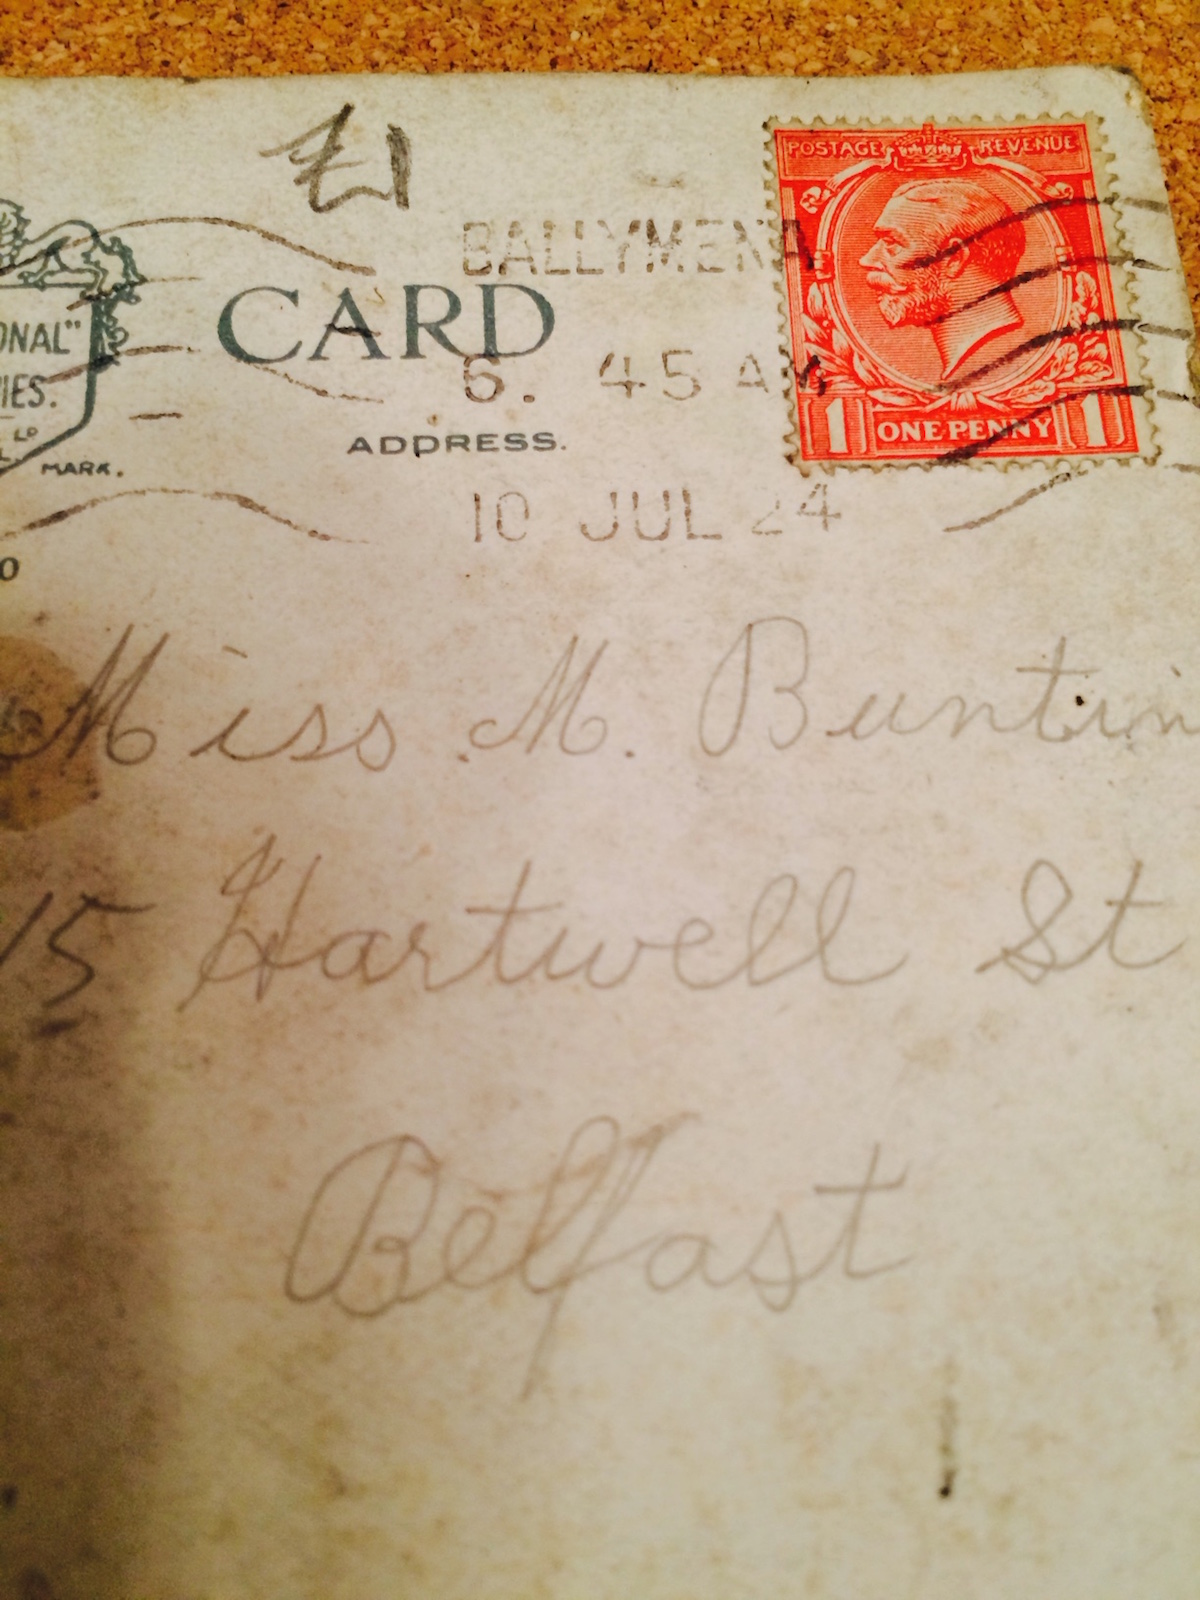 POSTAGE REVENUE
BALLYMENA
CARD
ONAL"
IES.
6. 45 AM
1 ONE PENNY 1
ADDRESS.
LD
L.
MARK.
10 JUL 24
O
Miss M. Buntin
15 Hartwell St
Belfast